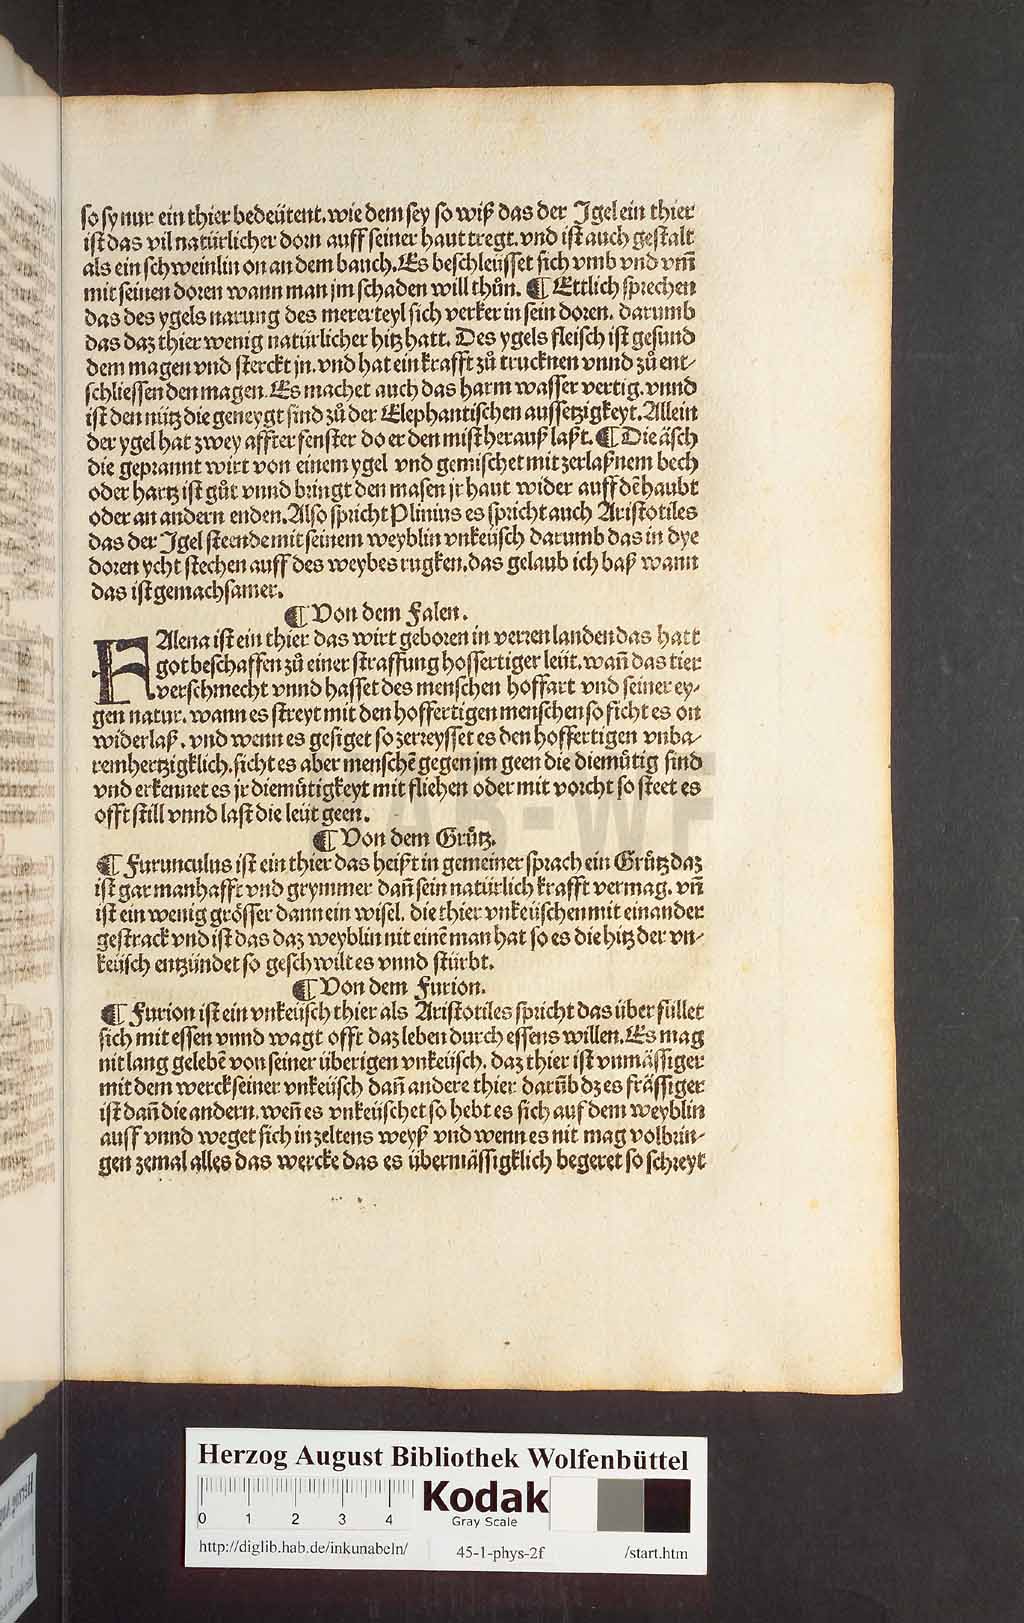 so sy nur ein thier bedeütent. wie dem sey so wiß das der Jgel ein thier
ist das vil natürlicher dorn auff seiner haut tregt. vnd ist auch gestalt
als ein schweinlin on an dem bauch. Es beschleüsset sich vmb vnd vm̃
mit seinen doren wann man jm schaden will thůn. ¶ Ettlich sprechen
das des ygels narung des merer teyl sich verker in sein doren. darumb
das daz thier wenig natürlicher hitz hatt. Des ygels fleisch ist gesund
dem magen vnd sterckt jn. vnd hat ein krafft zů trucknen vnnd zů ent-
schliessen den magen. Es machet auch das harm wasser vertig. vnnd
ist den nütz die geneygt sind zů der Elephantischen aussetzigkeyt. Allein
der ygel hat zwey affter fenster do er den mist herauß laßt. ¶ Die äsch
die geprannt wirt von einem ygel vnd gemischet mit zerlaßnem bech
oder hartz ist gůt vnnd bringt den masen jr haut wider auff dē haubt
oder an andern enden. Also spricht Plinius es spricht auch Aristotiles
das der Jgel steende mit seinem weyblin vnkeüsch darumb das in dye
doren ycht stechen auff des weybes rugken. das gelaub ich baß wann
das ist gemachsamer.
¶ Von dem Falen.
FAlena ist ein thier das wirt geboren in verren landen das hatt
got beschaffen zů einer straffung hoffertiger leüt. wañ das tier
verschmecht vnnd hasset des menschen hoffart vnd seiner ey-
gen natur. wann es streyt mit den hoffertigen menschen so ficht es on
widerlaß. vnd wenn es gesiget so zerreysset es den hoffertigen vnba-
remhertzigklich. sicht es aber menschē gegen jm geen die diemůtig sind
vnd erkennet es jr diemůtigkeyt mit fliehen oder mit vorcht so steet es
offt still vnnd last die leüt geen.
¶ Von dem Grůtz.
¶ Furunculus ist ein thier das heißt in gemeiner sprach ein Grůtz daz
ist gar manhafft vnd grymmer dañ sein natürlich krafft vermag. vñ
ist ein wenig grösser dann ein wisel. die thier vnkeüschen mit einander
gestrack vnd ist das daz weyblin nit einē man hat so es die hitz der vn-
keüsch entzündet so geschwilt es vnnd stürbt.
¶ Von dem Furion.
¶ Furion ist ein vnkeüsch thier als Aristotiles spricht das über füllet
sich mit essen vnnd wagt offt daz leben durch essens willen. Es mag
nit lang gelebē von seiner überigen vnkeüsch. daz thier ist vnmässiger
mit dem werck seiner vnkeüsch dañ andere thier darūb dz es frässiger
ist dañ die andern. weñ es vnkeüschet so hebt es sich auf dem weyblin
auff vnnd weget sich in zeltens weyß vnd wenn es nit mag volbrin-
gen zemal alles das wercke das es übermässigklich begeret so schreyt
HAB-WF
Herzog August Bibliothek Wolfenbüttel
0 1 2 3 4
Kodak
Gray Scale
http://diglib.hab.de/inkunabeln/ 45-1-phys-2f /start.htm